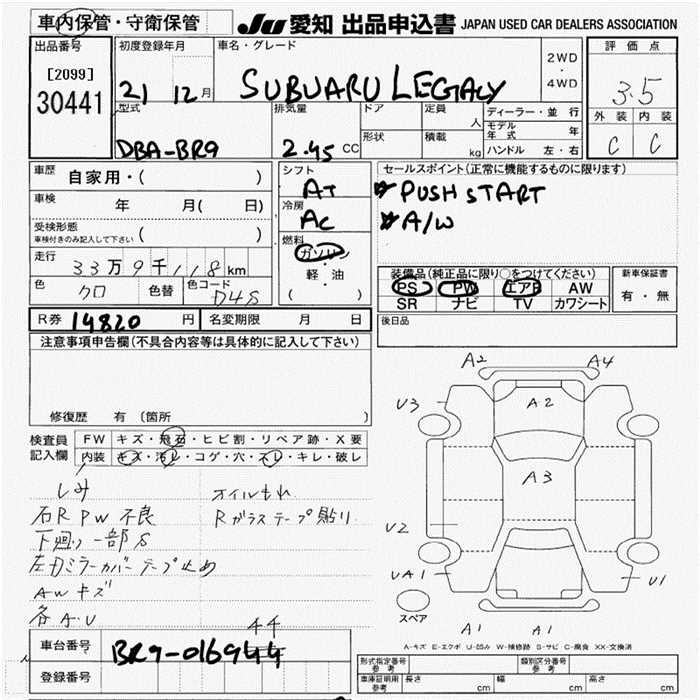 車内保管・守衛保管 JU 愛知 出品申込書 JAPAN USED CAR DEALERS ASSOCIATION
出品番号 初度登録年月 車名・グレード 2WD・4WD 評価点
[2099]
30441
21 12月 SUBUARU LEGACY 3.5
型式 排気量 ドア 定員 人 ディーラー・並行 外装 内装
形状 積載 kg モデル年式 年
DBA-BR9 2.45 CC ハンドル 左・右 C C
車歴 自家用・( )
シフト AT
セールスポイント(正常に機能するものに限ります)
PUSH START
A/W
車検 年 月( 日)
冷房 AC
受検形態
車検付きのみ記入して下さい ( )
燃料 ガソリン・軽・油 ( )
走行 33万9千118km
装備品(純正品に限り○をつけてください) 新車保証書
PS PW エアB AW 有・無
SR ナビ TV カワシート
色 クロ 色替 色コード D4S
R券 14820円 名変期限 月 日
後日品
注意事項申告欄(不具合内容等は具体的に記入して下さい)
修復歴 有 (箇所 )
検査員記入欄 FW キズ・飛石・ヒビ割・リペア跡・X要
内装 キズ・汚レ・コゲ・穴・スレ・キレ・破レ
しみ オイルもれ
右R PW 不良 Rガラステープ貼り
下廻り一部S
左ドミラーカバーテープ止め
AWキズ
各A.U
A2 A4
U3 A2
A3
U2
UA1 U1
スペア
A1 A1
A-キズ E-エクボ U-凹み W-補修跡 S-サビ C-腐食 XX-交換済
車台番号 BR9-016944
44
登録番号
形式指定番号 参考 類別区分番号 参考
車庫証明用 参考 長さ cm 幅 cm 高さ cm